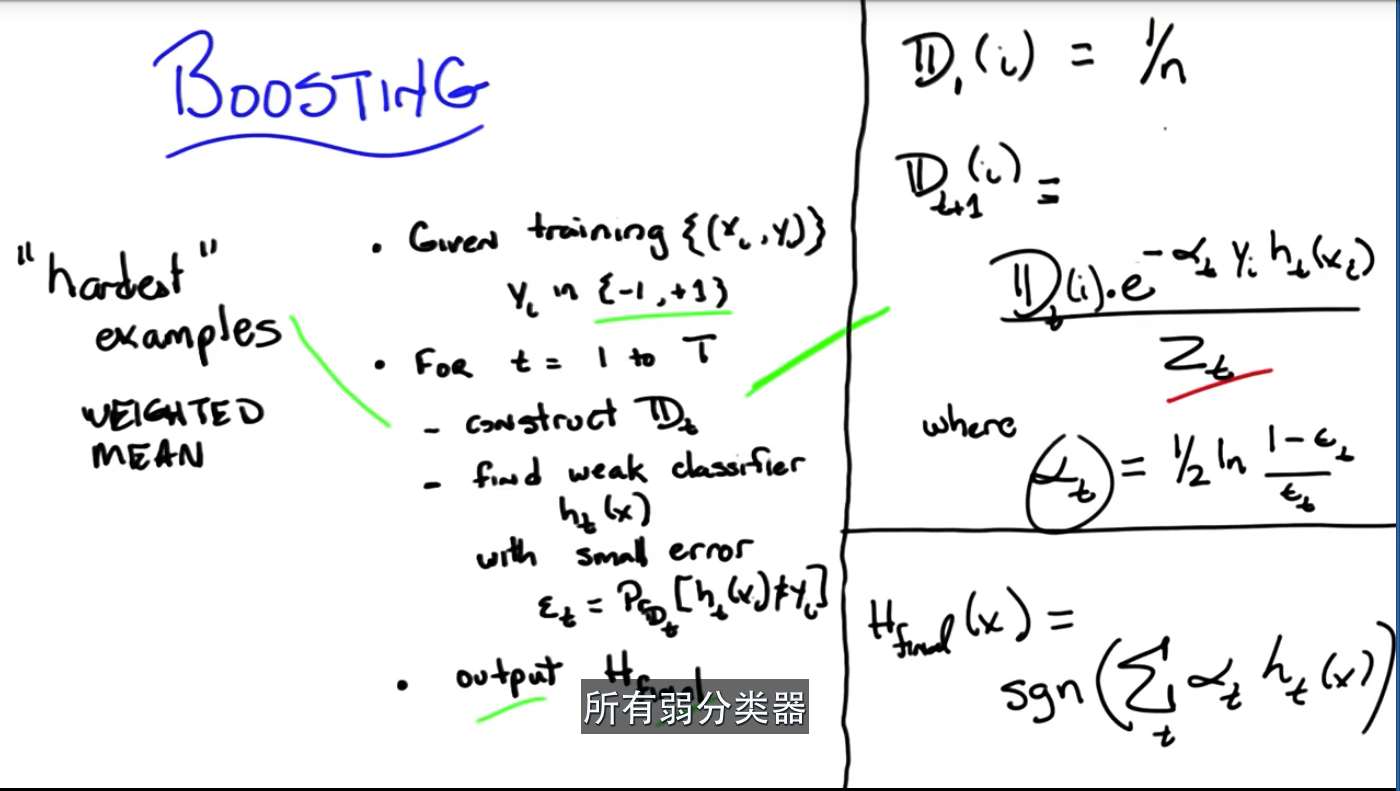 BOOSTING
"hardest"
examples
WEIGHTED
MEAN
• Given training {(x_i, y_i)}
y_i in {-1, +1}
• For t = 1 to T
- construct D_t
- find weak classifier
h_t(x)
with small error
ε_t = P_{D_t}[h_t(x_i) ≠ y_i]
• output H_final
所有弱分类器
D_1(i) = 1/n
D_{t+1}(i) =
D_t(i)·e^{-α_t y_i h_t(x_i)}
Z_t
where
α_t = 1/2 ln (1-ε_t)/ε_t
H_final(x) =
sgn(∑_t α_t h_t(x))